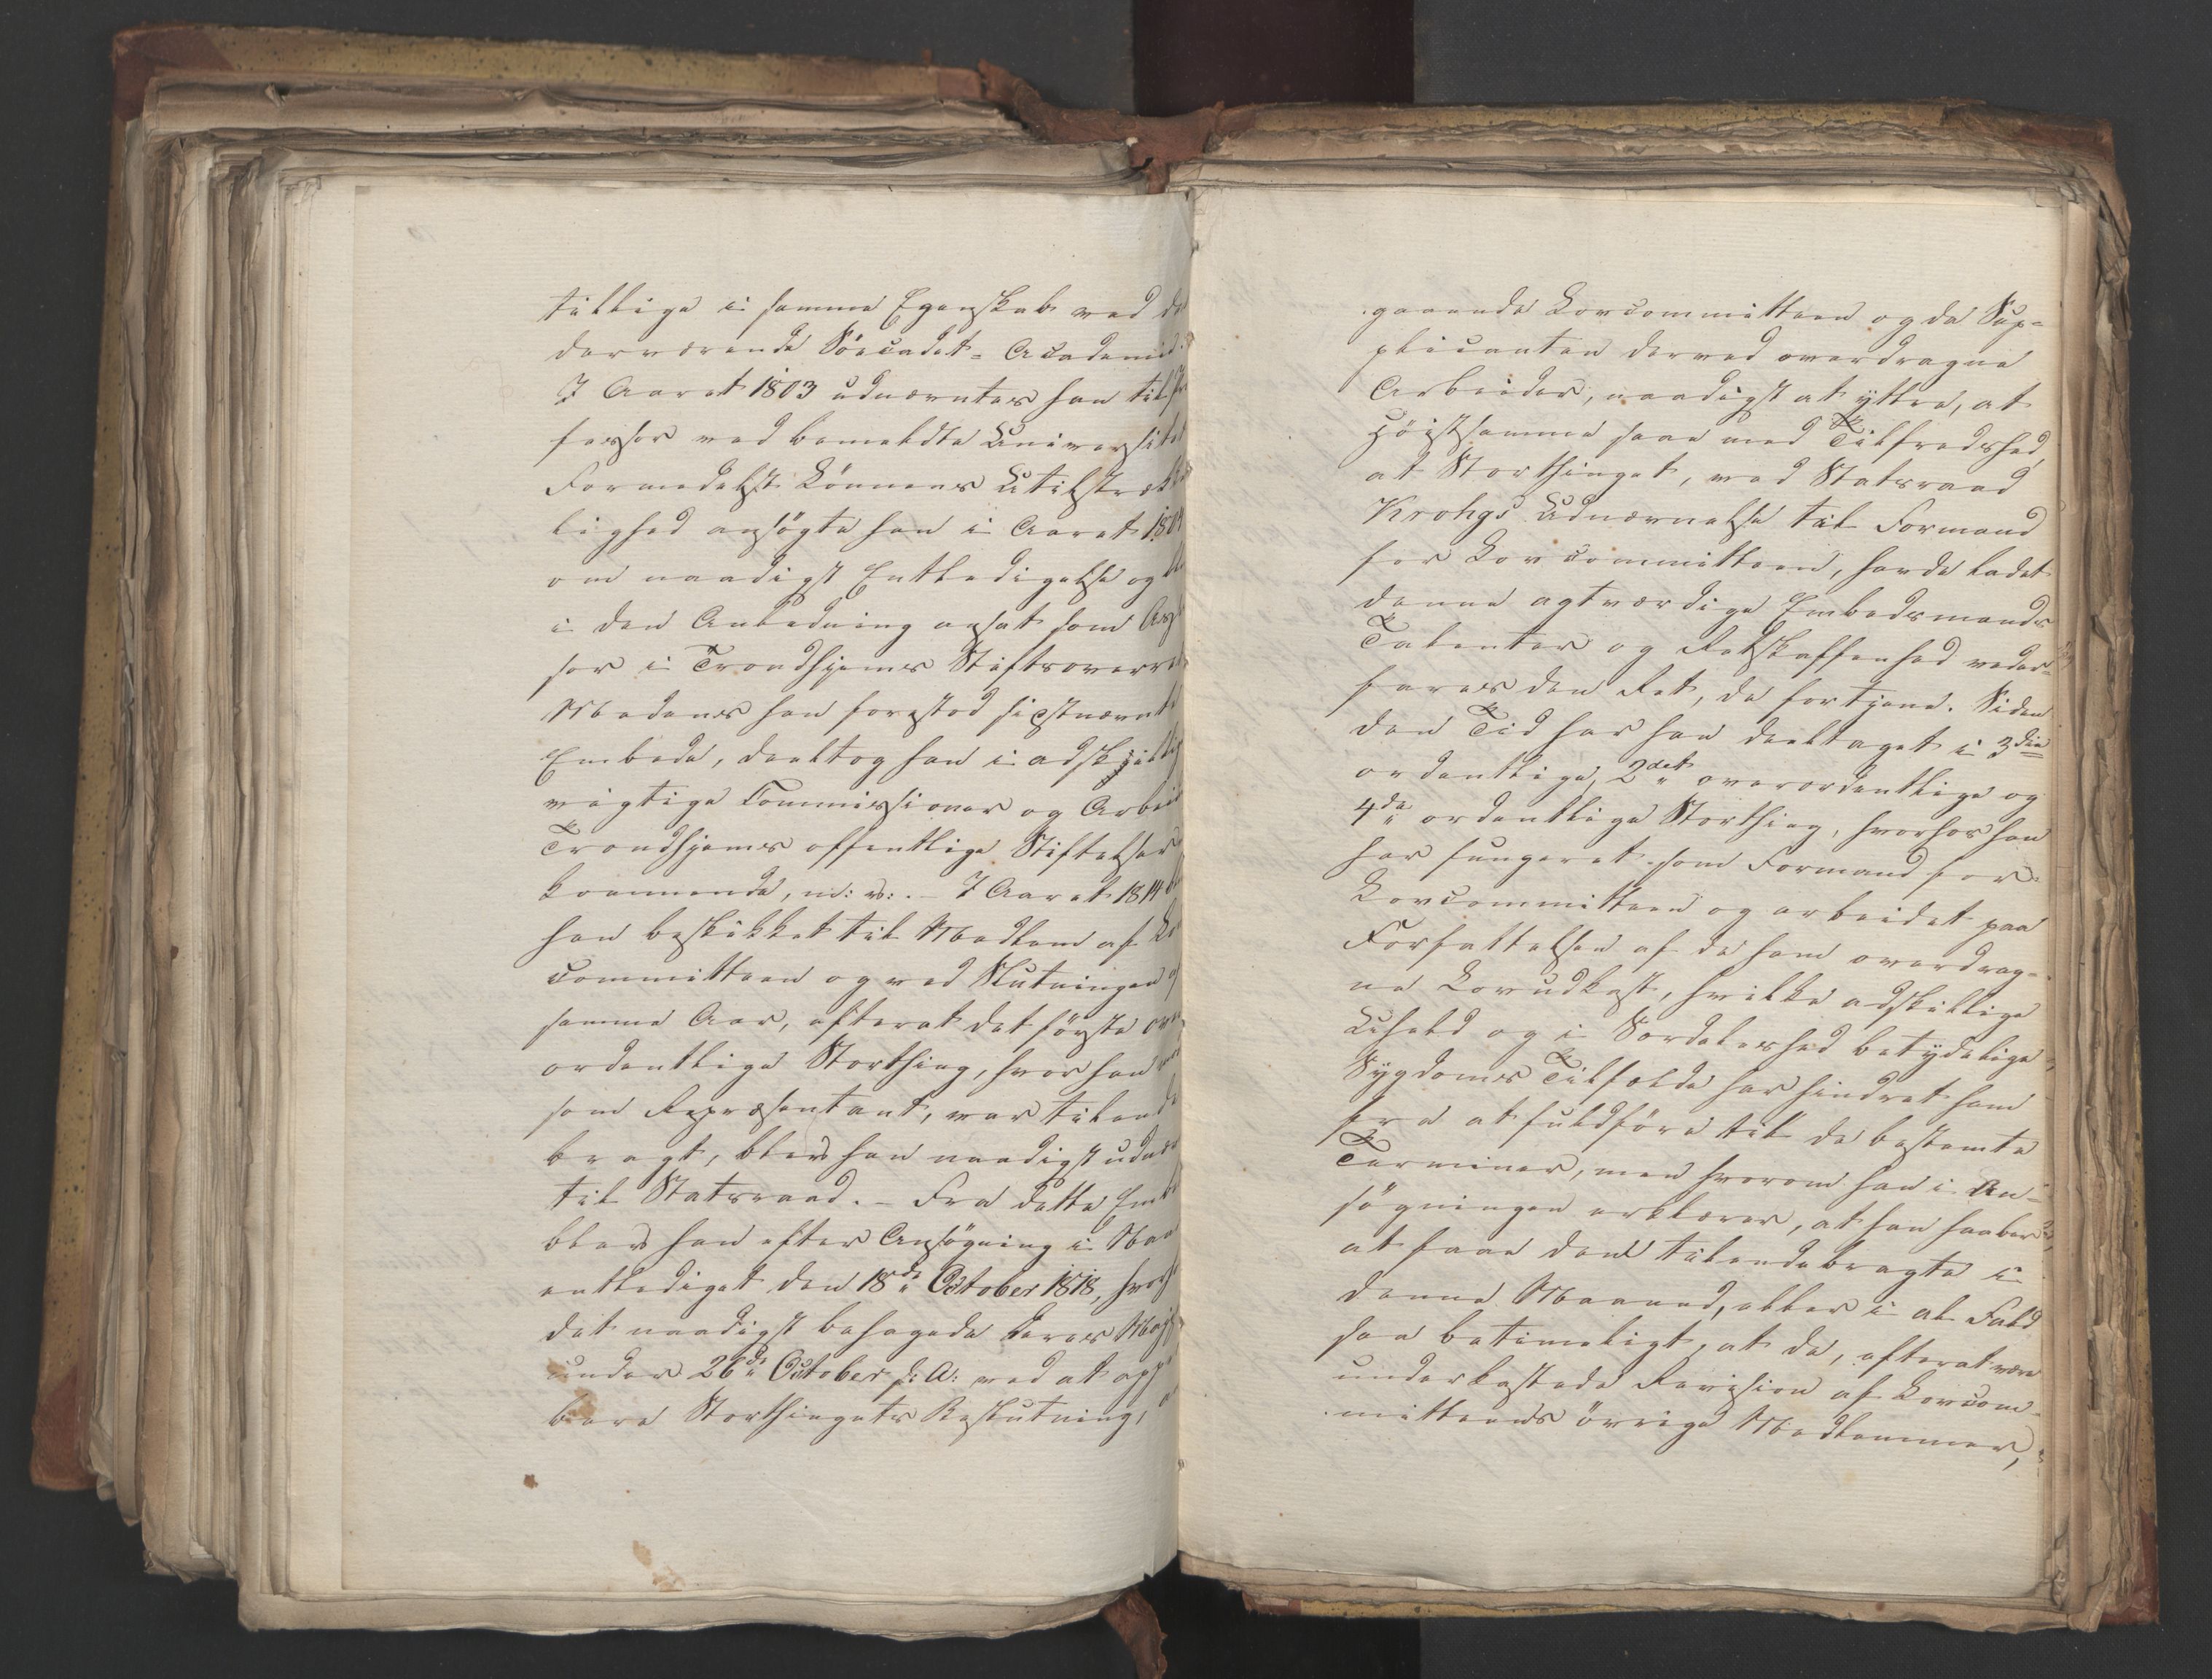 tillige i samme Egenskab ved det
derværende Söecadet-Academie.
I Aaret 1803 udnævntes han til Pro
fessor ved bemeldte Universitet
Formedelst Lönnens Utilstræk
lighed ansögte han i Aaret 1804
om naadigst Entledigelse og blev
i den Anledning ansat som Asses
sor i Trondhjems Stiftsoverret
Medens han forestod sidstnævnte
Embede, deeltog han i adskillige
vigtige Commissioner og Arbeider
Trondhjems offentlige Stiftelser
kommende, m: v: . – I Aaret 1814 blev
han beskikket til Medlem af Lov
committeen og ved Slutningen af
samme Aar, efterat det förste over
ordentlige Storthing, hvor han var
som Repræsentant, var tilende
bragt, blev han naadigst udnævnt
til Statsraad. – Fra dette Embede
blev han efter Ansögning i Naade
entlediget den 18de October 1818, hvorhos
det naadigst behagede Deres Majestæt
under 26de October s: A: ved at appro
bere Storthingets Beslutning,
gaaende Lovcommitteen og de Sup-
plicanten derved overdragne
Arbeider, naadigst at yttre, at
Höistsamme saae med Tilfredshed,
at Storthinget, ved Statsraad
Krohgs Udnævnelse til Formand
for Lovcommitteen, havde ladet
denne agtværdige Embedsmands
Talenter og Retskaffenhed veder-
fares den Ret, de fortjene. Siden
den Tid har han deeltaget i 3die
ordentlige, 2det overordentlige og
4de ordentlige Storthing, hvorhos han
har fungeret som Formand for
Lovcommitteen og arbeidet paa
Forfattelsen af de ham overdrag-
ne Lovudkast, hvilke adskillige
Uheld og i Særdeleshed betydelige
Sygdoms Tilfælde har hindret ham
fra at fuldföre til de bestemte
Terminer, men hvorom han i An-
sögningen erklærer, at han haaber
at faae dem tilendebragte i
denne Maaned, eller i al Fald
saa betimeligt, at de, efterat være
underkastede Revision af Lovcom-
mitteens övrige Medlemmer,